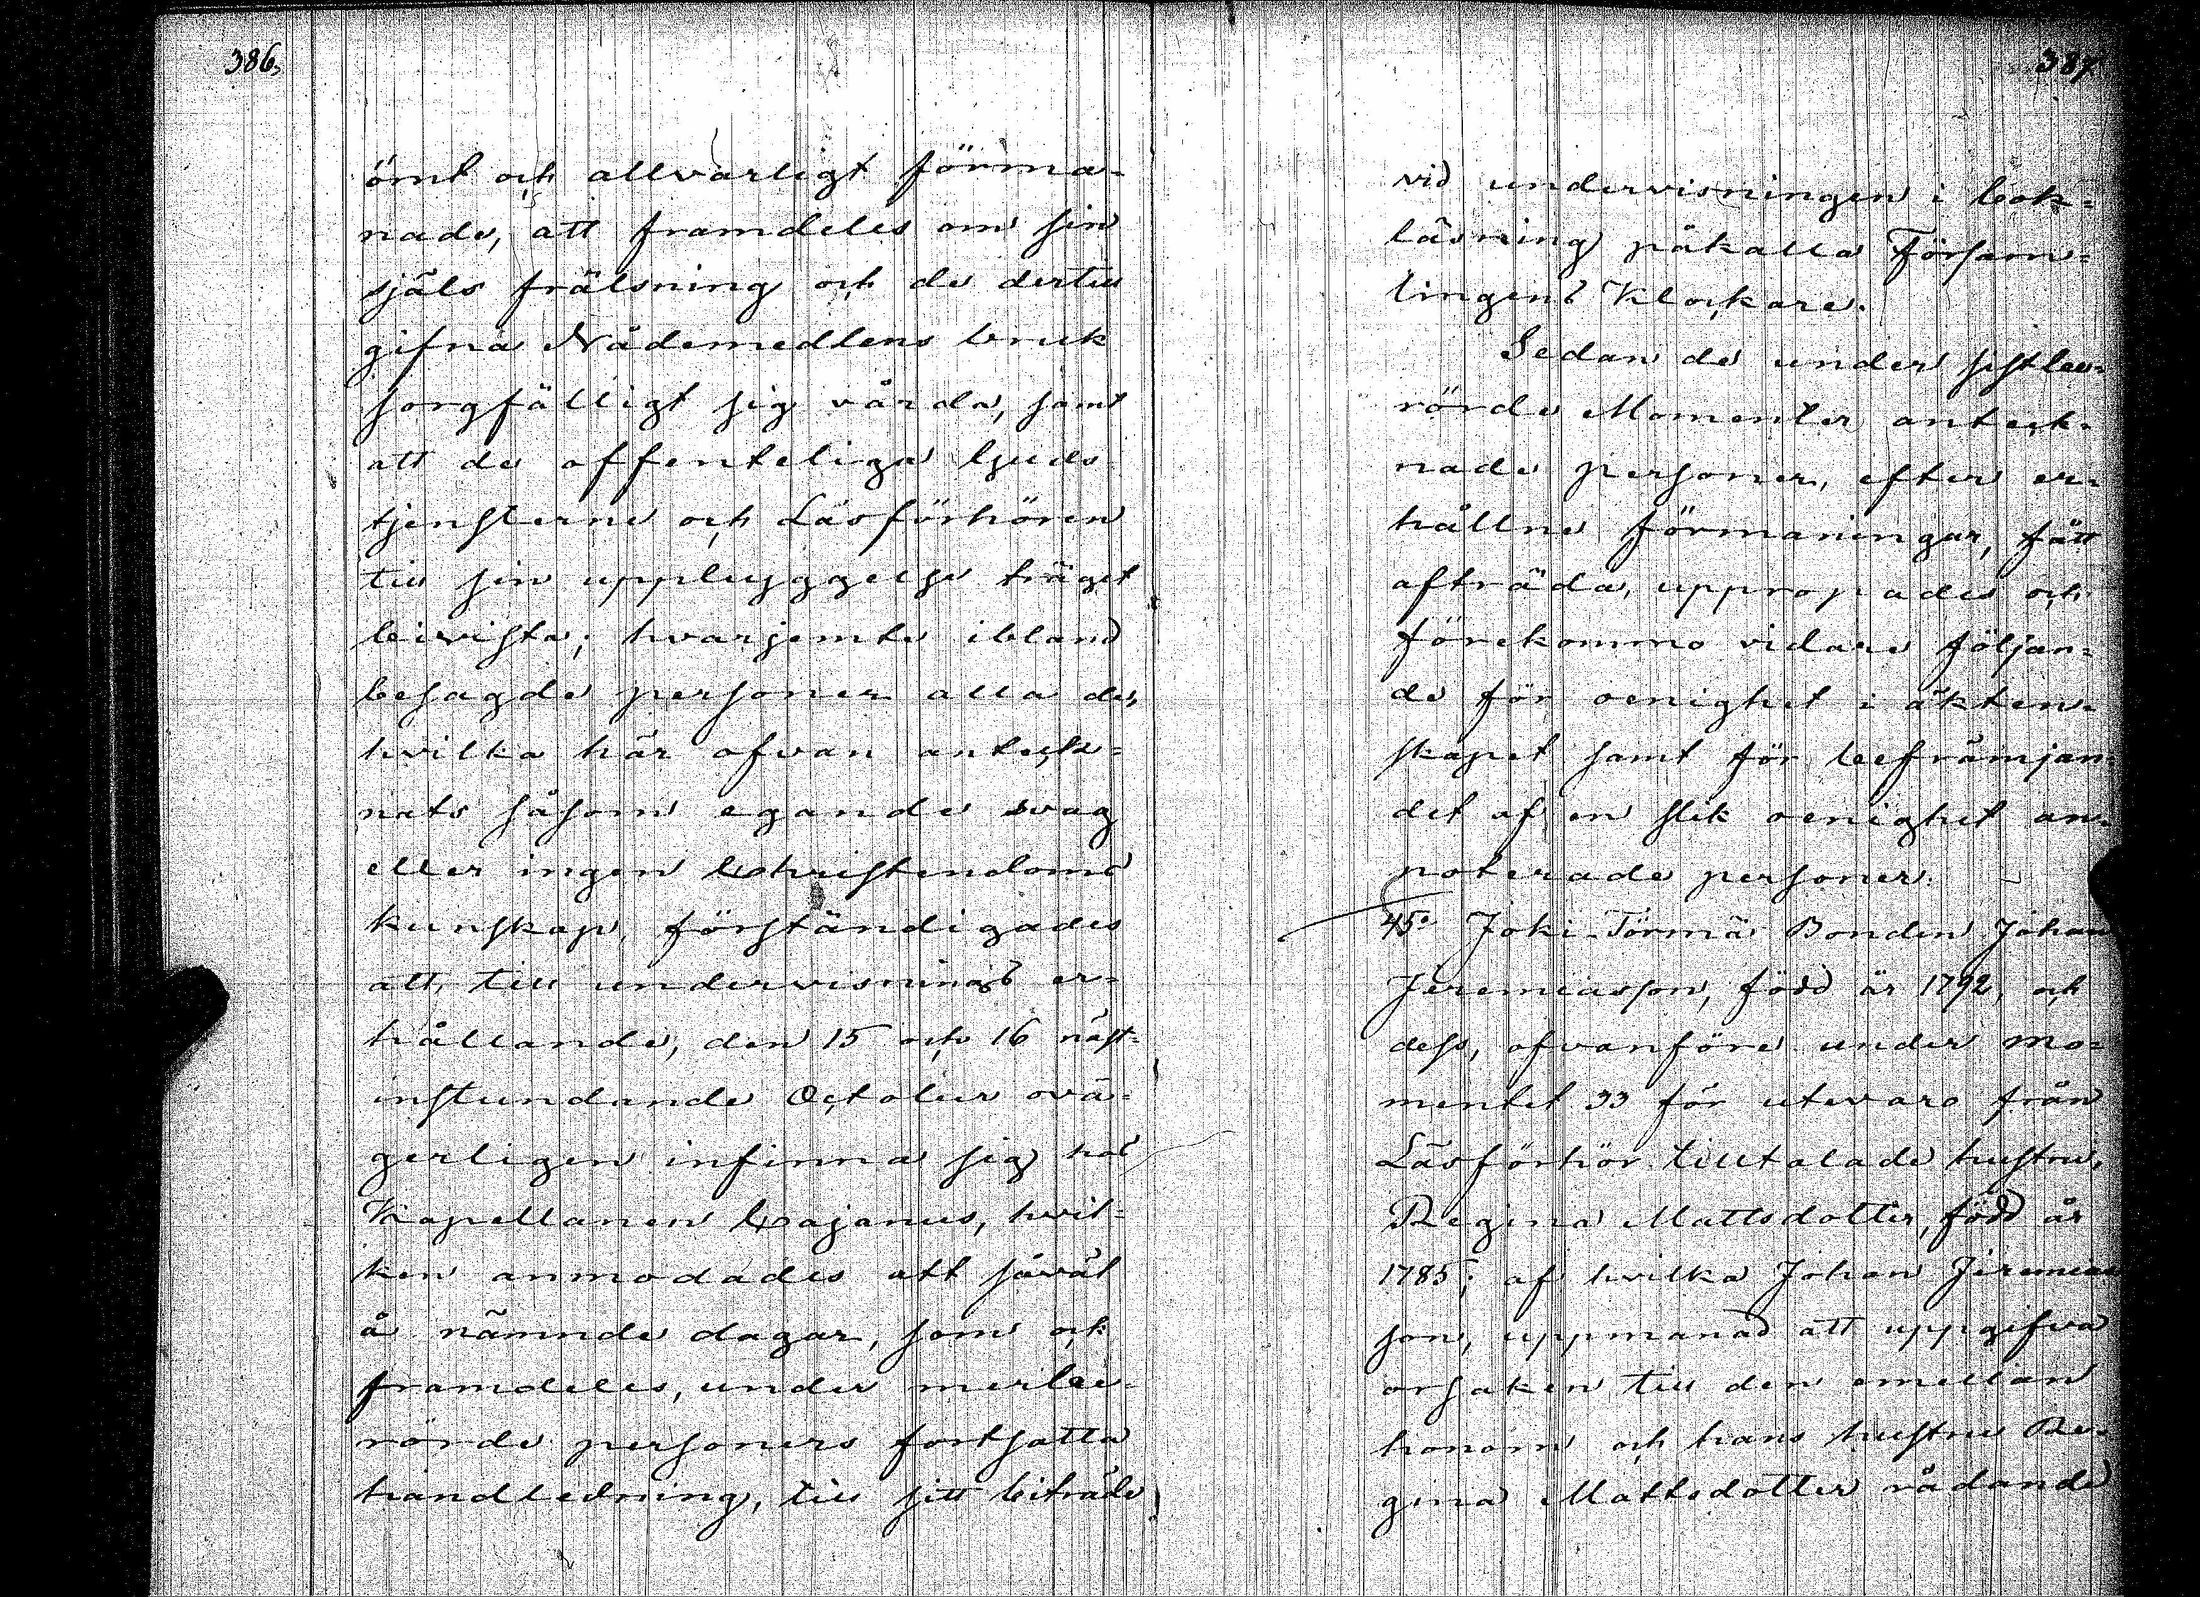 386.
ömt och allvarligt förma-
nade, att framdeles om sin
själs frälsning och de dertill
gifna Nådemedlens bruk
sorgfälligt sig vårda, samt
att de offenteliga Guds
tjensterne och Läsförhören
till sin uppbyggelse träget
bevista; hvarjemte ibland
besagde personer alla de,
hvilka här ofvan anteck-
nats såsom egande svag
eller ingen Christendoms
kunskap, förständigades
att, till undervisnings er-
hållande, den 15 och 16 näst-
instundande October ovä-
gerligen infinna sig hos
Kapellanen Cajanus, hvil-
ken anmodades att såväl
å nämnde dagar, som ock
framdeles, under merbe-
rörde personers fortsatta
handledning, till sitt biträde
387
vid undervisningen i bok-
läsning påkalla Försam-
lingens Klockare.
Sedan de under sistbe-
rörde Momenter anteck-
nade personer, efter er-
hållne förmaningar, fått
afträda, uppropades och
förekommo vidare följan-
de för oenighet i äkten-
skapet samt för befrämjan-
det af en slik oenighet an-
noterade personer.
45o Joki-Törmä Bonden Johan
Jeremiasson, född år 1792, och
dess, ofvanföre under mo-
mentet 33 för utevaro från
Läsförhör tilltalade hustru,
Regina Mattsdotter, född år
1785; af hvilka Johan Jeremias
son, uppmanad att uppgifva
orsaken till den emellan
honom och hans hustru Re-
gina Mattsdotter rådande